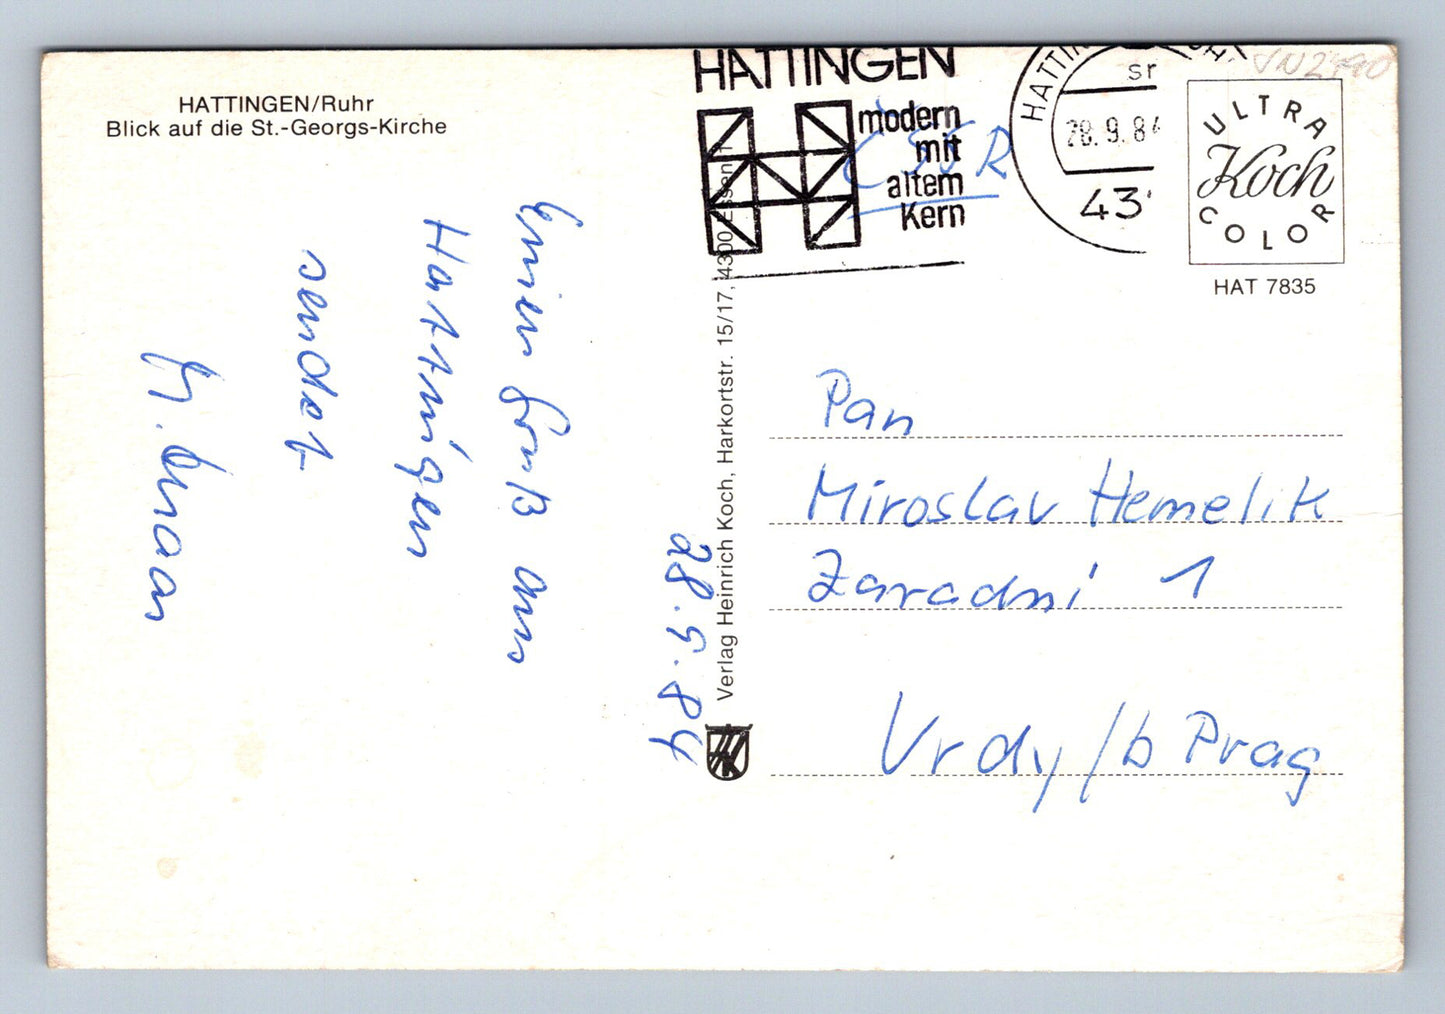 HATTINGEN/Ruhr
Blick auf die St.-Georgs-Kirche
28.9.84
Einen Gruß aus
Hattingen
sendet
Verlag Heinrich Koch, Harkortstr. 15/17, 4300 Essen 1
HATTINGEN
modern
mit
altem
Kern
ČSSR
HATTIN
sr
28.9.84
43
ULTRA
Koch
COLOR
HAT 7835
Pan
Miroslav Hemelik
Zaradní 1
Vrdy/b Prag